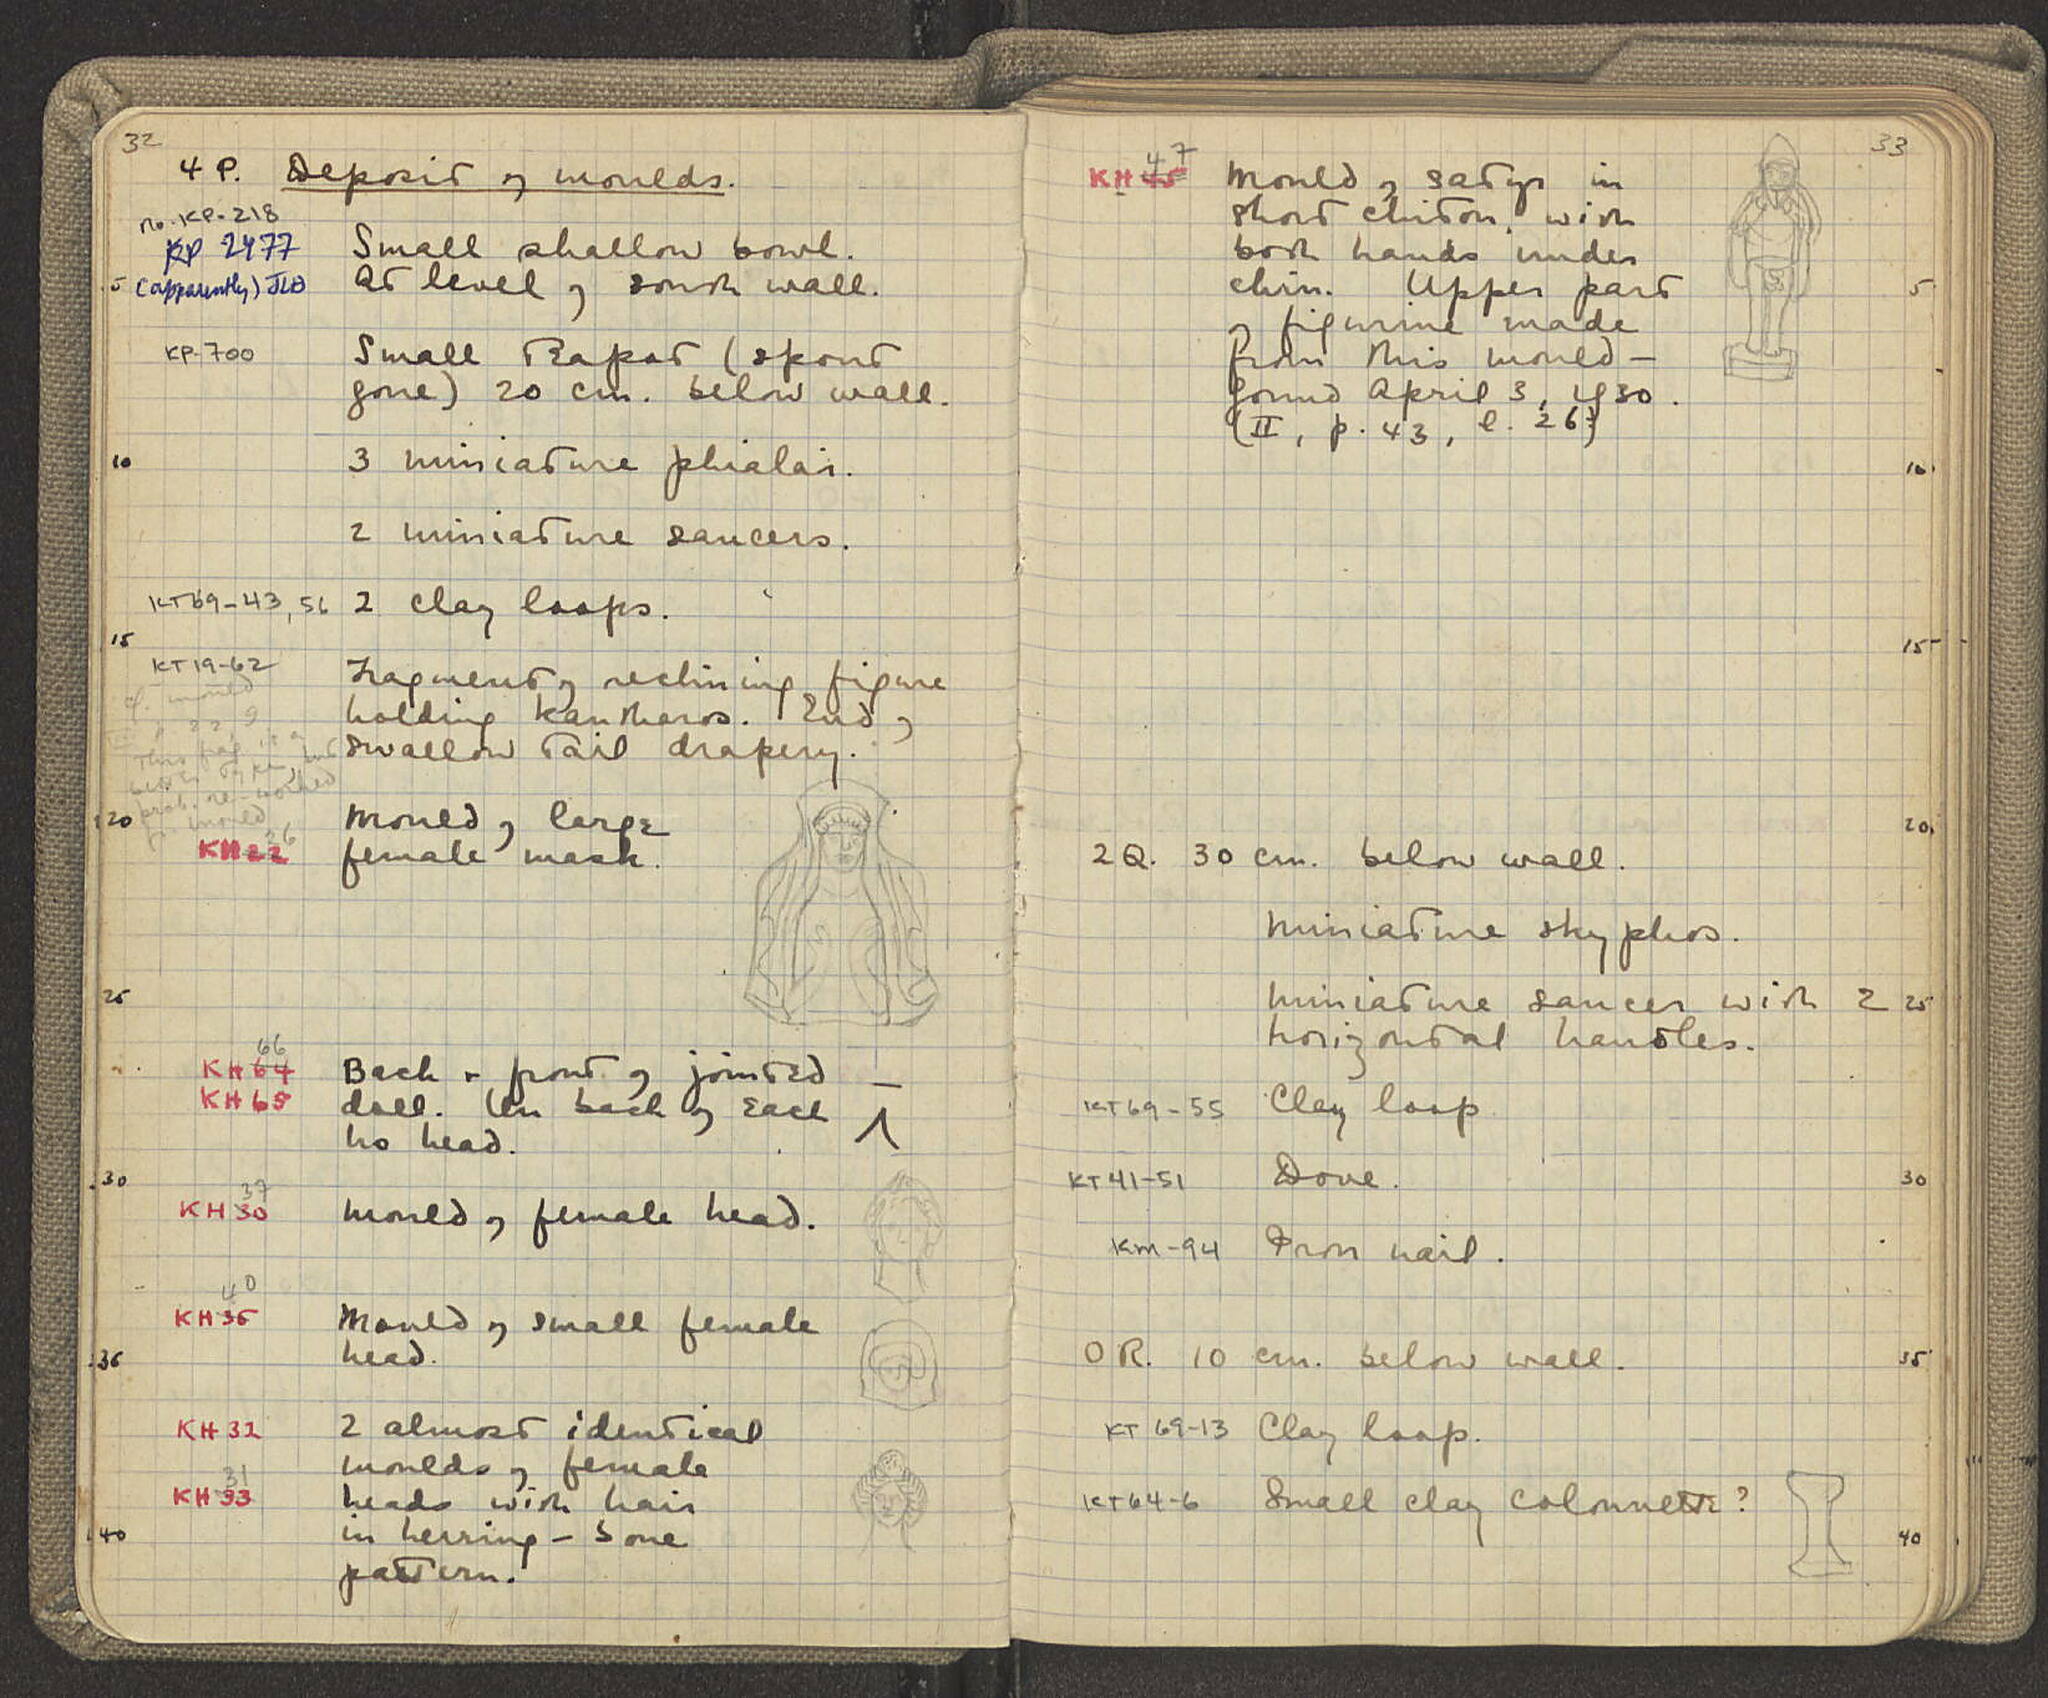 32
4 P. Deposit of moulds.
no. KP-218
KP 2477 Small shallow bowl.
5 (apparently) JLB At level of south wall.
KP-700 Small Teapot (spout
gone) 20 cm. below wall.
10 3 miniature phialai.
2 miniature saucers.
KT69-43, 56 2 clay loops.
15
KT19-62 Fragment of reclining figure
cf. mould
holding kantharos. End of
p. 22, 9
swallow tail drapery.
This frag. is a
better type, but
prob. re-worked
fr. mould
20 Mould of large
KH 22 26 female mask.
25
66
KH 64 Back + front of jointed —
KH 65 doll. On back of each Λ
no head.
30
37
KH 30 Mould of female head.
40
KH 35 Mould of small female
35 head.
KH 32 2 almost identical
moulds of female
31
KH 33 heads with hair
40 in herring-bone
pattern.
33
47
KH 45 Mould of satyr in
short chiton, with
both hands under
5 chin. Upper part
of figurine made
from this mould —
found April 3, 1930.
(II, p. 43, l. 26)
10
15
20
2Q. 30 cm. below wall.
Miniature skyphos.
Miniature saucer with 2 25
horizontal handles.
KT69-55 Clay loop
KT41-51 Dove. 30
KM-94 Iron nail.
OR. 10 cm. below wall. 35
KT 69-13 Clay loop.
KT64-6 Small clay colonnette?
40